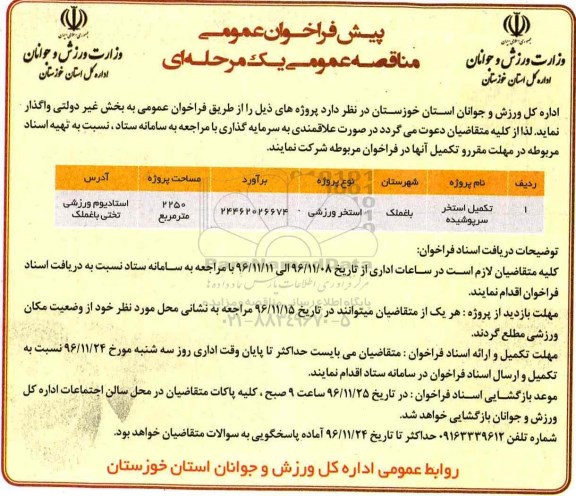 پیش فراخوان عمومی
مناقصه عمومی یک مرحله‌ای
جمهوری اسلامی ایران
وزارت ورزش و جوانان
اداره کل استان خوزستان
جمهوری اسلامی ایران
وزارت ورزش و جوانان
اداره کل استان خوزستان
اداره کل ورزش و جوانان استان خوزستان در نظر دارد پروژه های ذیل را از طریق فراخوان عمومی به بخش غیر دولتی واگذار
نماید. لذا از کلیه متقاضیان دعوت می گردد در صورت علاقمندی به سرمایه گذاری با مراجعه به سامانه ستاد، نسبت به تهیه اسناد
مربوطه در مهلت مقرر و تکمیل آنها در فراخوان مربوطه شرکت نمایند.
ردیف نام پروژه شهرستان نوع پروژه برآورد مساحت پروژه آدرس
۱ تکمیل استخر سرپوشیده باغملک استخر ورزشی ۲۴۴۶۲۰۲۶۶۷۴ ۲۲۵۰ مترمربع استادیوم ورزشی تختی باغملک
توضیحات دریافت اسناد فراخوان:
کلیه متقاضیان لازم است در ساعات اداری از تاریخ ۹۶/۱۱/۰۸ الی ۹۶/۱۱/۱۱ با مراجعه به سامانه ستاد نسبت به دریافت اسناد
فراخوان اقدام نمایند.
مهلت بازدید از پروژه : هر یک از متقاضیان میتوانند در تاریخ ۹۶/۱۱/۱۵ مراجعه به نشانی محل مورد نظر خود از وضعیت مکان
ورزشی مطلع گردند.
مهلت تکمیل و ارائه اسناد فراخوان : متقاضیان می بایست حداکثر تا پایان وقت اداری روز سه شنبه مورخ ۹۶/۱۱/۲۴ نسبت به
تکمیل و ارسال اسناد فراخوان در سامانه ستاد اقدام نمایند.
موعد بازگشایی اسناد فراخوان : در تاریخ ۹۶/۱۱/۲۵ ساعت ۹ صبح ، کلیه پاکات متقاضیان در محل سالن اجتماعات اداره کل
ورزش و جوانان بازگشایی خواهد شد.
شماره تلفن ۰۹۱۶۳۳۳۹۶۱۲ حداکثر تا تاریخ ۹۶/۱۱/۲۴ آماده پاسخگویی به سوالات متقاضیان خواهد بود.
روابط عمومی اداره کل ورزش و جوانان استان خوزستان